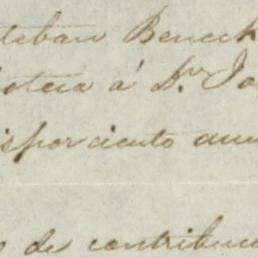 teban Beneck
oteca á Dn Jo
is por ciento anu
o de contribuc